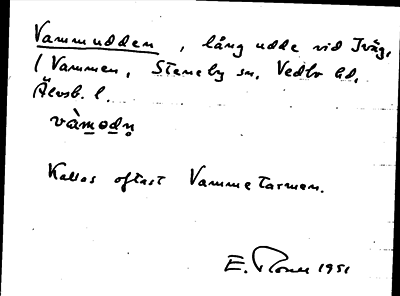 Vammudden, lång udde vid Iväg,
i Vammen, Steneby sn. Vedbo hd.
Älvsb. l.
vàmodn̥
Kallas oftast Vammetarmen.
E. 1951